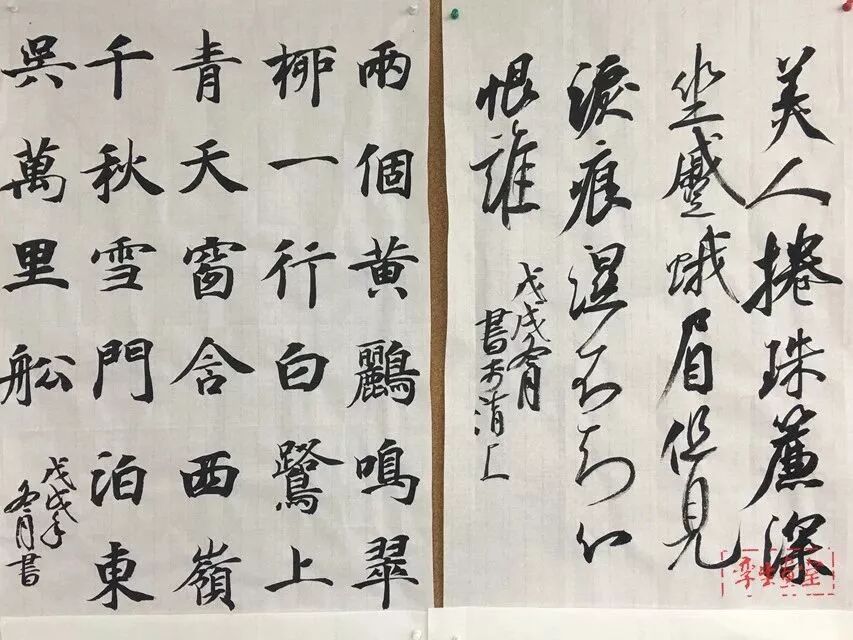 美人捲珠簾深
坐蹙蛾眉但見
淚痕湿不知心
恨誰
戊戌冬月
書於清上
兩個黄鸝鳴翠
柳一行白鷺上
青天窗含西嶺
千秋雪門泊東
吳萬里船
戊戌年
冬月書